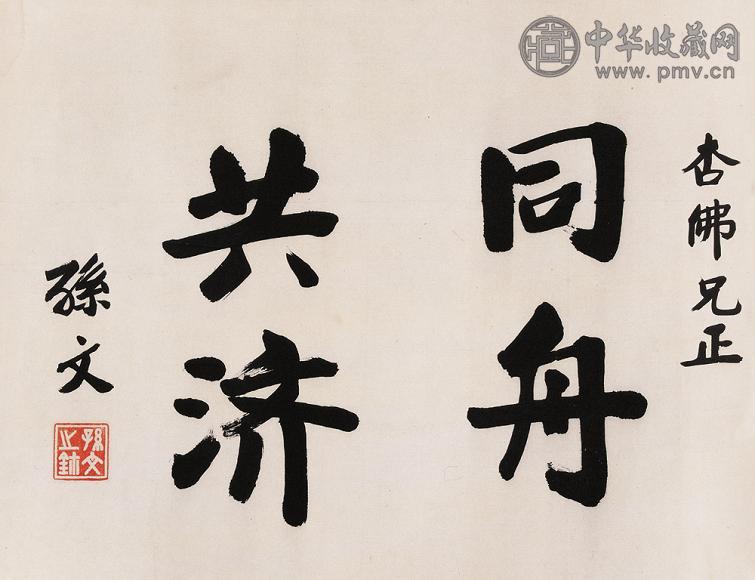 杏佛兄正
同舟
共济
孫文
孫文之鉨
中华收藏网
www.pmv.cn